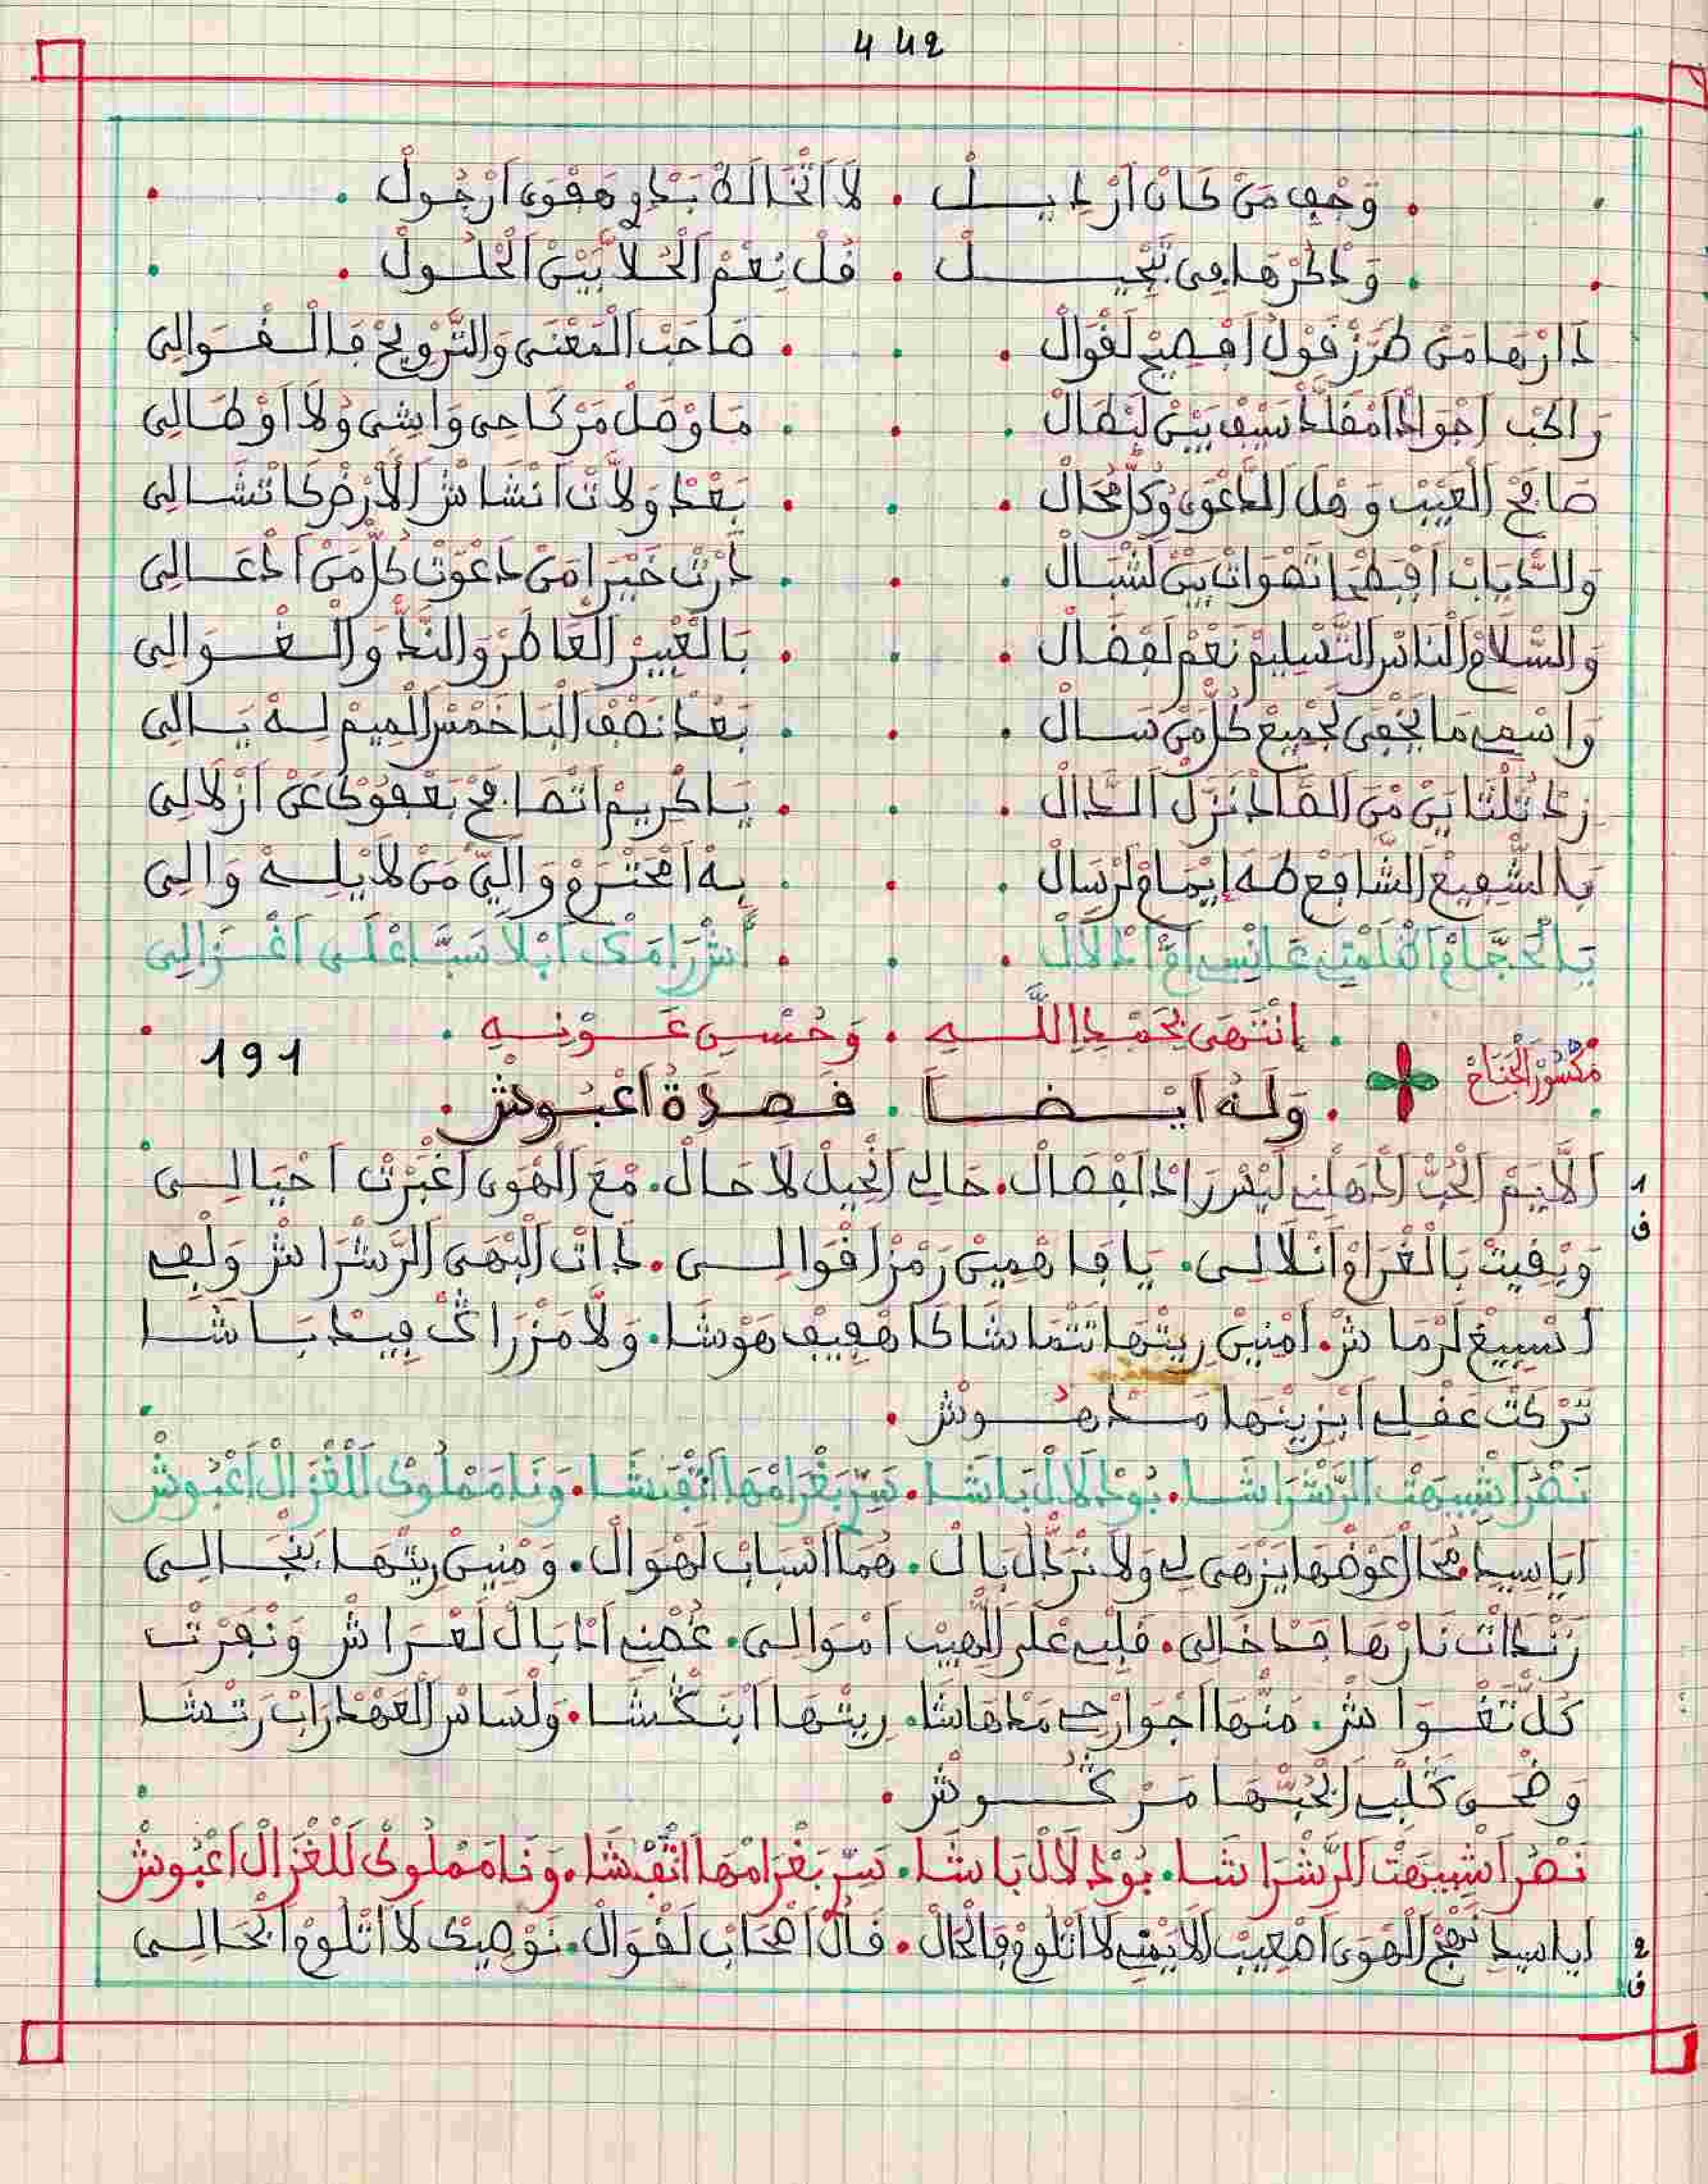 442
وَجْهِ مَنْ كَانْ اَرْدِيــلْ . لَا اتْخَالَطْ بَدْوِ هَفْوَى اَرْجُولْ .
وَدْكُرْهَا مِى تَّحِيــلْ . قُلْ نِعْمَ الْحُلَا بَيْنْ الْحُلُــولْ .
دَارْهَا مَنْ طَرَّزْ قَوْلُ اَفْصِيحْ لَقْوَالْ . صَاحَبْ الْمَعْنَى وَالتَّرْوِيحْ فَالْـقْـوَالِى
رَاكَبْ اجْوَادْ امْقَلَّدْ سِيفْ بِينْ لَبْطَالْ . مَا وْصَلْ مَرْكَاحِى وَاشِى وُلَا اوْطَالِى
صَافِحْ الْعَيْبْ وَهْلَ الدَّعْوَى وْكُلّْ مُحَالْ . بَعْدْ وَلَاتْ اَنْشَاشْ الَارْضْ كَاتْشَالِى
وَالدِّيَابْ افْطَمْ اتْهْوَاتْ بِينْ لَشْبَالْ . دَرْتْ خَيْرَ امَنْ دَعْوَتْ كُلّْ مَنْ اَدْعَالِى
وَالسّْلَامْ النَّاسْ التَّسْلِيمْ نَعْمْ لَفْضَالْ . بَالْعْبِيرْ الْعَاطَرْ وَالنَّدّْ وَالْـغْـوَالِى
وَاسْمِى مَا يَخْفَى لَجْمِيعْ كُلّْ مَنْ سَــالْ . بَعْدْ نَصْفْ الْبَا خَمْسْ الْمِيمْ لِـهْ يَـالِى
زِدْ ثُلْثَايَنْ مَنْ الصَّادْ نَزَّلْ الـدَّالْ . يَـا كْرِيمْ اتْصَافَحْ بَعْفُوكْ عَنْ ازْلَالِى
بِالشّْفِيعْ الشَّافَعْ طَهَ اِيمَامْ لَرْسَالْ . بِهْ اَمْحَتْرَمْ وَالِيّْ مَنْ لَايْلِـهْ وَالِى
يَـا الْحَجَّامْ اقْلَمْتِى عَانْسِ امّْ ادْلَالْ . اَشْ رَامَكْ اَبْلَا سَبَّا عْلَـى اغْـزَالِى
. اِنْتَهَى بِحَمْدِ اللَّـهِ . وَحُسْنِ عَـوْنِـهِ .
مَكْسُورْ الْجْنَاحْ
191
. وَلَـهُ اَيْـضـاً . قَـصِـدَةُ اعْبُـوشْ .
1
اَلَّايَمْ الْحُبّْ الْدَهْلْنِى لَيْسْ رَادْ لَفْصَالْ . حَالِى انْحِيلْ لَا حَالْ . مْعَ الْهْوَى اعْبَرْتْ احْيَالِـى
ف
وَيْقِيتْ بَالْغْرَامْ اَنْلَالِـى . يَا فَاهْمِينْ رَمْزْ اقْوَالِـى . دَاتْ الْبْهَى الرَّشْرَاشْ وَلْعِى
اَسِيغْ لَرْمَاشْ . امْنِينْ رِيتْهَا تَتْمَاشَا كَاهْفِيفْ هَوْشَا . وَلَّا مْزْرَاكْ فِيـدْ بَـاشَـا
تَرْكَتْ عَقْلِى ابْزِينْهَا مَــدْهُــوشْ .
نَهْرْ اشْبِيهَتْ الرَّشْرَاشَـا . بُودْلَالْ بَاشَا . سَرّْ بَغْرَامْهَا اتْفَشَّا . وَنَا مَمْلُوكْ الَلْغْزَالْ اعْبُوشْ
اَيَا سِيدِ مُحَالْ عَوْضْهَا يَزْهَى لِى وَلَا نْرَدّْ لْ بَالْ . هُمَا اسْبَابْ لَهْوَالْ . وَمْنِينْ رِيتْهَا بَنْجَالِـى
زَنْدَاتْ نَارْهَا فَـدْخَالِى . قَلْبِى عْلَى اللّْهِيبْ امْوَالِـى . غُصْنِى ادْبَالْ لَعْـرَاشْ وَنْفَرْتْ
كُلّْ تَـغْـوَاشْ . مَنّْهَا اجْوَارْحِى مَدْهَاشَا . رِيتْهَا ابْنَكْشَا . وَلْسَاسْ الْعَهْدْ رَابْ رَتْشَا
وَضْحَى كَلْبِى ابْحُبّْهَا مَـرْكُــوشْ .
نَهْرْ اشْبِيهَتْ الرَّشْرَاشَـا . بُودْلَالْ بَاشَا . سَرّْ بَغْرَامْهَا اتْفَشَّا . وَنَا مَمْلُوكْ الَلْغْزَالْ اعْبُوشْ
2
اَيا سيدِ نَهْجْ الْهْوَى اصْعِيبْ اَلَايَمْنِى لَا اتْلُومْ فَالْحَالْ . قَالْ اصْحَابْ لَقْوَالْ . نَوْصِيكْ لَا اتْلُومْ ابْحَالِـى
ف